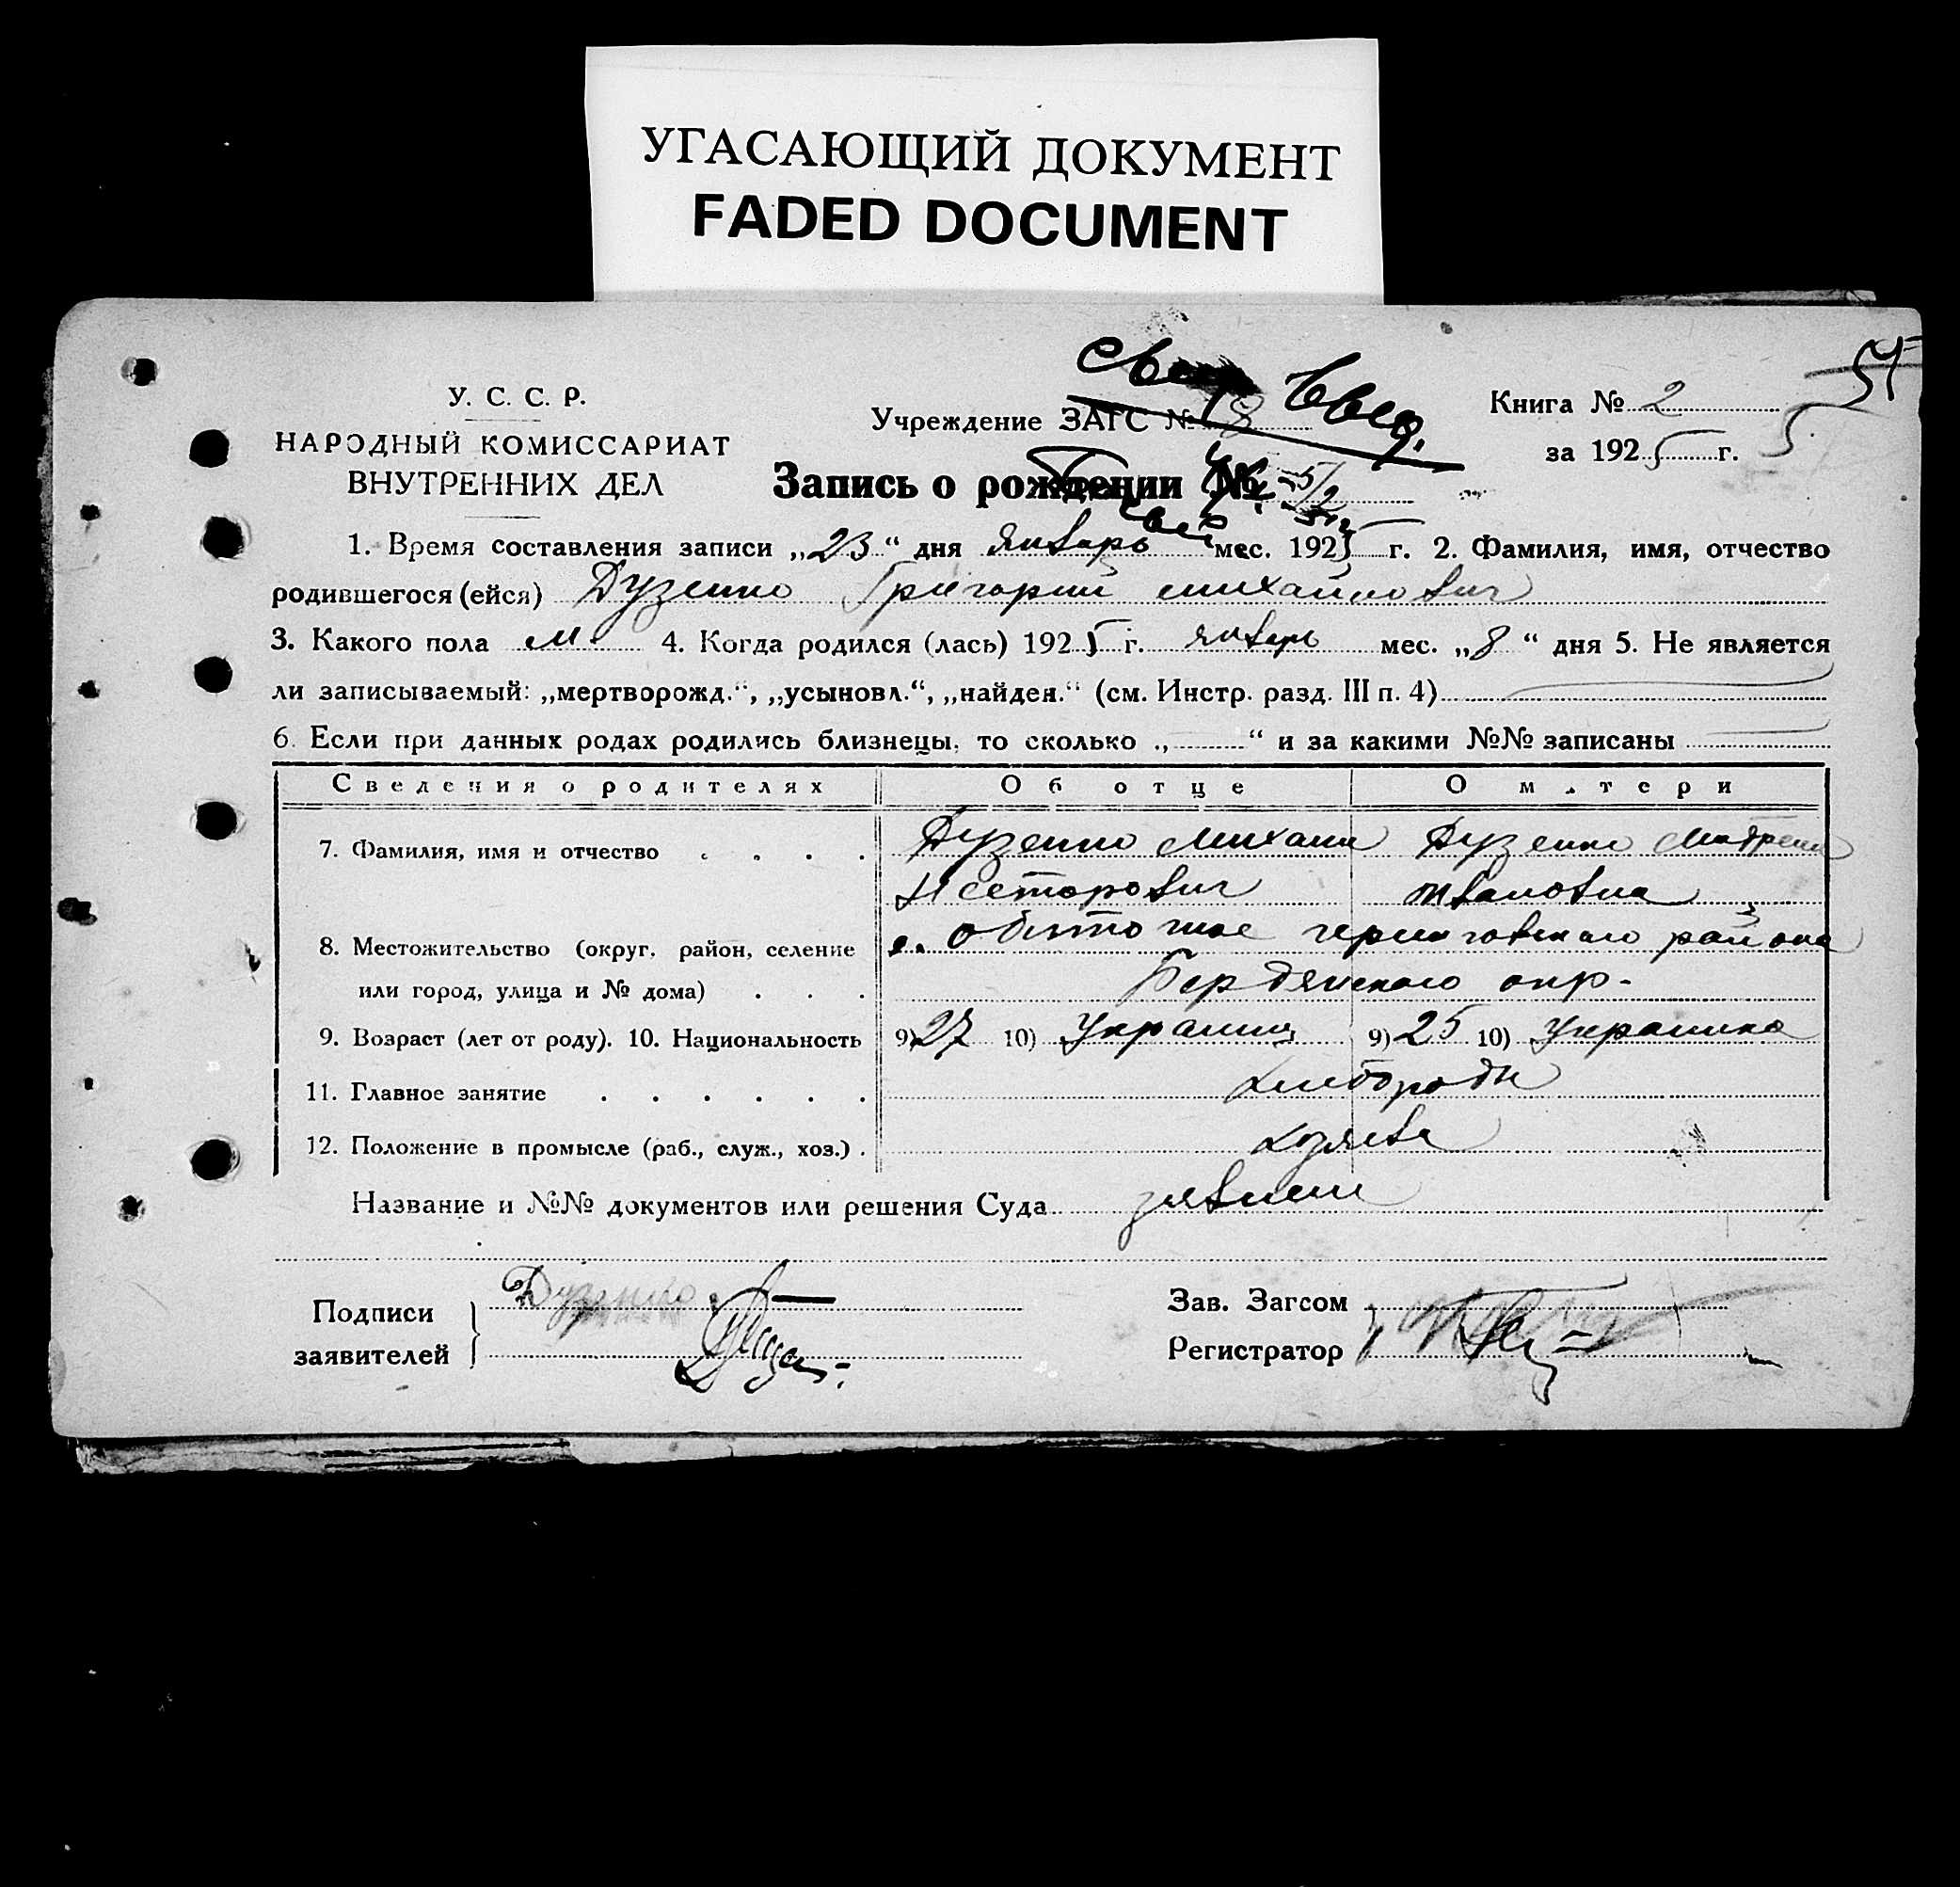 УГАСАЮЩИЙ ДОКУМЕНТ
FADED DOCUMENT
У. С. С. Р.
НАРОДНЫЙ КОМИССАРИАТ
ВНУТРЕННИХ ДЕЛ
Учреждение ЗАГС № 8
Книга № 2
за 1925 г.
Запись о рождении № 5/2
1. Время составления записи „23“ дня январь мес. 1925 г. 2. Фамилия, имя, отчество
родившегося (ейся) Дузенко Григорий михайлович
3. Какого пола м. 4. Когда родился (лась) 1925 г. январь мес. „8“ дня 5. Не является
ли записываемый: „мертворожд.“, „усыновл.“, „найден.“ (см. Инстр. разд. III п. 4)
6. Если при данных родах родились близнецы, то сколько „ “ и за какими №№ записаны
Сведения о родителях Об отце О матери
7. Фамилия, имя и отчество Дузенко Михаил Дузенко Матрена
Нсеторович Ивановна
8. Местожительство (округ, район, селение с. Обиточное черниговского района
или город, улица и № дома) Бердянского окр.
9. Возраст (лет от роду). 10. Национальность 9) 27 10) Украинц 9) 25 10) Украинка
11. Главное занятие хлебороды
12. Положение в промысле (раб., служ., хоз.) хозяева
Название и №№ документов или решения Суда
Подписи Дузенко Зав. Загсом
заявителей Регистратор